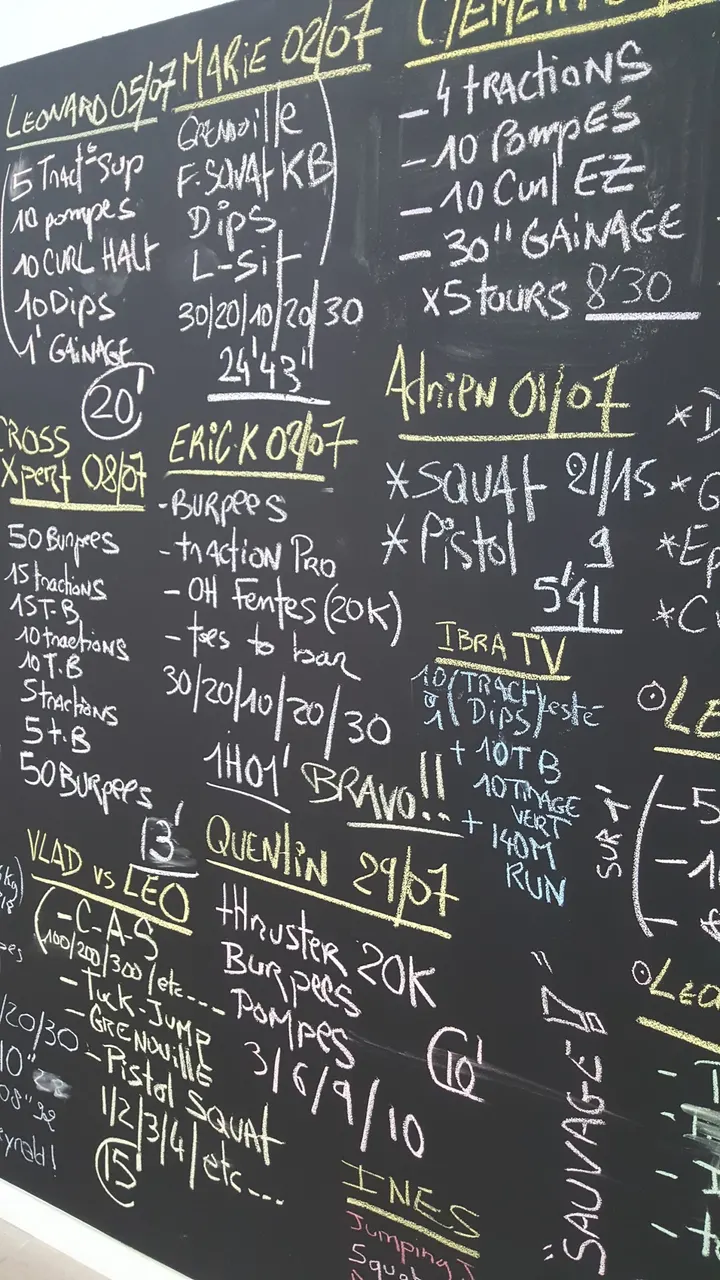 LEONARD 05/07
5 Tract° Sup
10 pompes
10 CURL HALT
10 Dips
1' GAiNAGE
20'
MARiE 02/07
GRENOUille
F. SQUAT KB
Dips
L-Sit
30/20/10/20/30
24'43"
- 4 tRACtiONS
- 10 PomPES
- 10 Curl EZ
- 30" GAiNAGE
x5 tOURS 8'30
CROSS
Xpert 08/07
50 Burpees
15 tractions
15 T.B
10 tractions
10 T.B
5 tractions
5 t.B
50 BURpees
3'
ERiC.K 02/07
- BURpees
- tRACtion PRO
- OH Fentes (20K)
- toes to bar
30/20/10/20/30
1H01' BRAVO!!
AdRiEN 01/07
* SQUAt 21/15
* Pistol 9
5'41
IBRA TV
10 (TRACT)
(Dips)
+ 10 T B
10 TIRAGE
VERT
+ 140M
RUN
SUR 1'
VLAD vs LEO
- C-A-S
100/200/300/etc...
- Tuck-JUMP
- GRENOUiLLE
- Pistol SQUAt
1/2/3/4/etc...
15'
QUENtiN 29/07
tHRUSteR 20K
BURpees
POMPES
3/6/9/10
"SAUVAGE"
INES
Jumping J
Squat